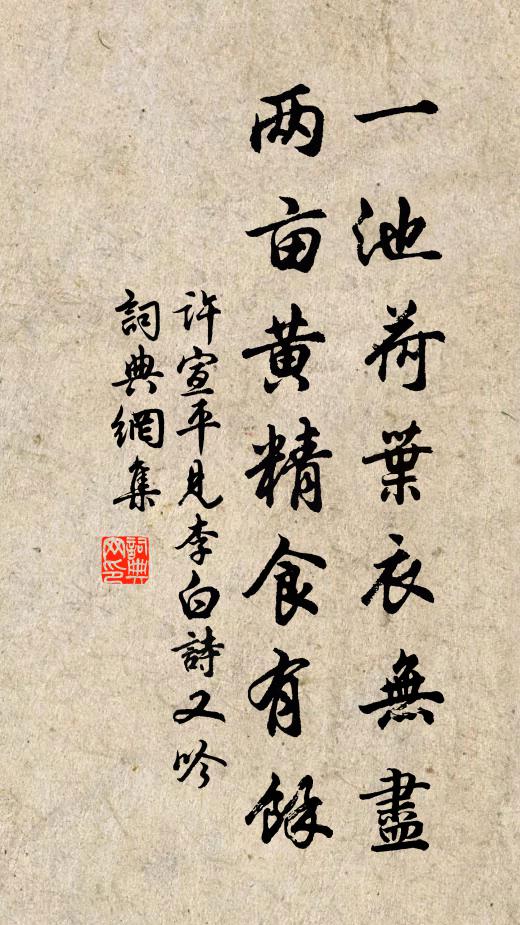 一池荷葉衣無盡
两亩黄精食有餘
許宣平見李白詩又吟
詞典網集
詞典网印